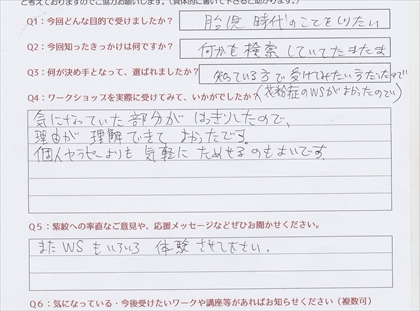 と考えておりますのでご協力お願いします。(具体的に書いて下さると助かります。)
Q1：今回どんな目的で受けましたか？ 胎児時代のことをしりたい
Q2：今回知ったきっかけは何ですか？ 何かを検索していてたまたま
Q3：何が決め手となって、選ばれましたか？ 知っている方で受けてみたい方だったので
Q4：ワークショップを実際に受けてみて、いかがでしたか？ (花粉症のWSがよかったので)
気になっていた部分がはっきりしたので、
理由が理解できてよかったです。
個人セラピーよりも気軽にためせるのもよいです。
Q5：紫紋への率直なご意見や、応援メッセージなどぜひお聞かせください。
またWSもいろいろ体験させて下さい.
Q6：気になっている・今後受けたいワークや講座等があればお知らせください（複数可）